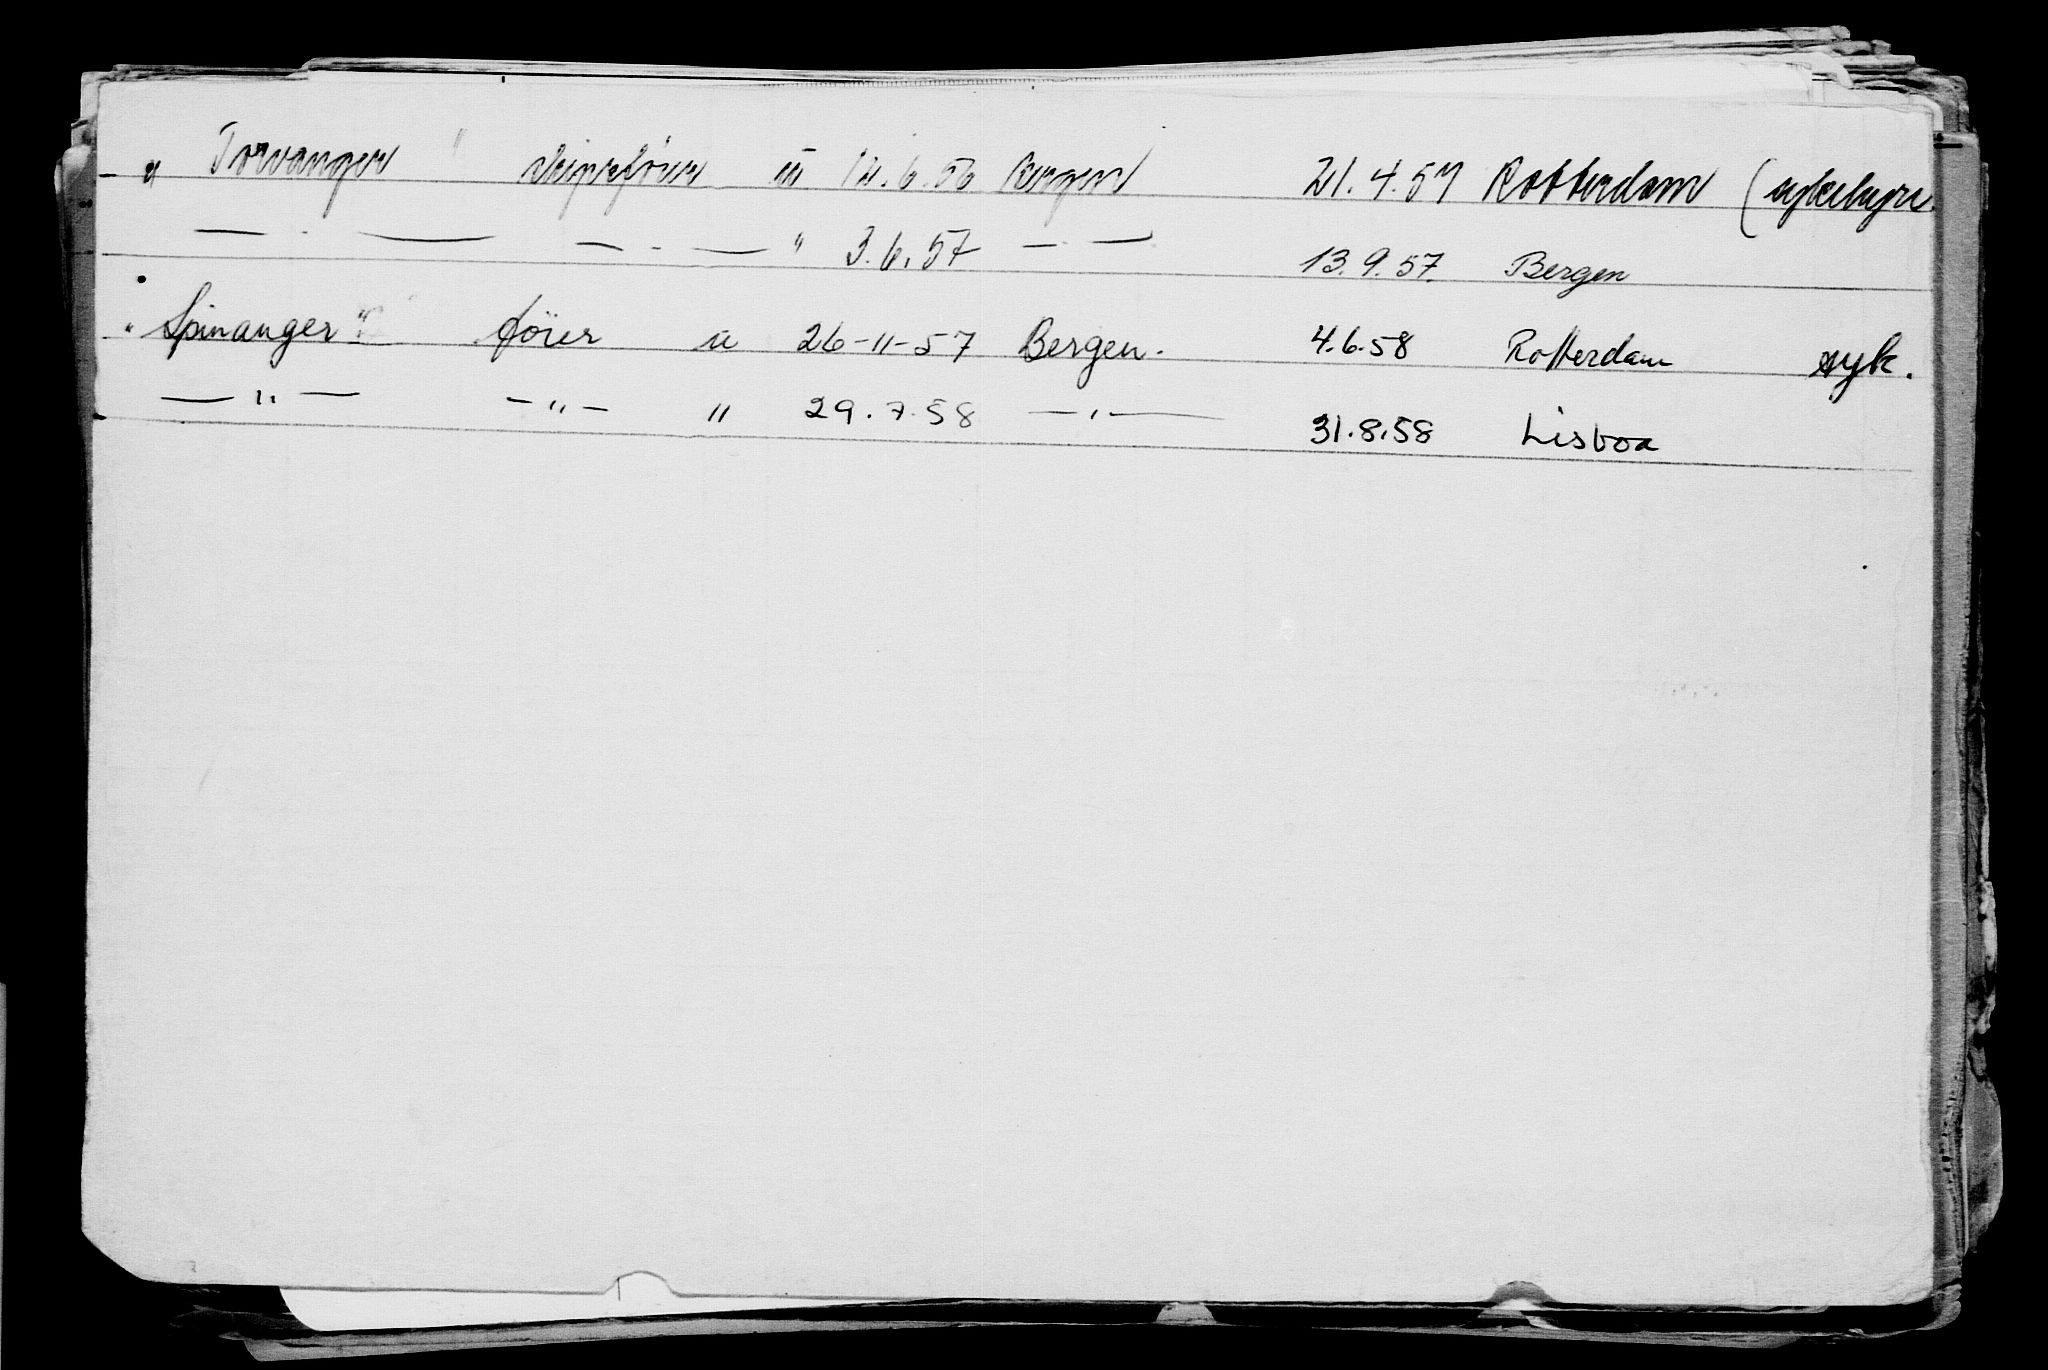 " Torvanger " skipsfører u 12.6.56 Bergen 21.4.57 Rotterdam (
— . — — . — " 3.6.57 — . — 13.9.57. Bergen
" Spinanger " fører u 26-11-57 Bergen. 4.6.58 Rotterdam syk.
— " — — " — " 29.7.58 — " — 31.8.58 Lisboa